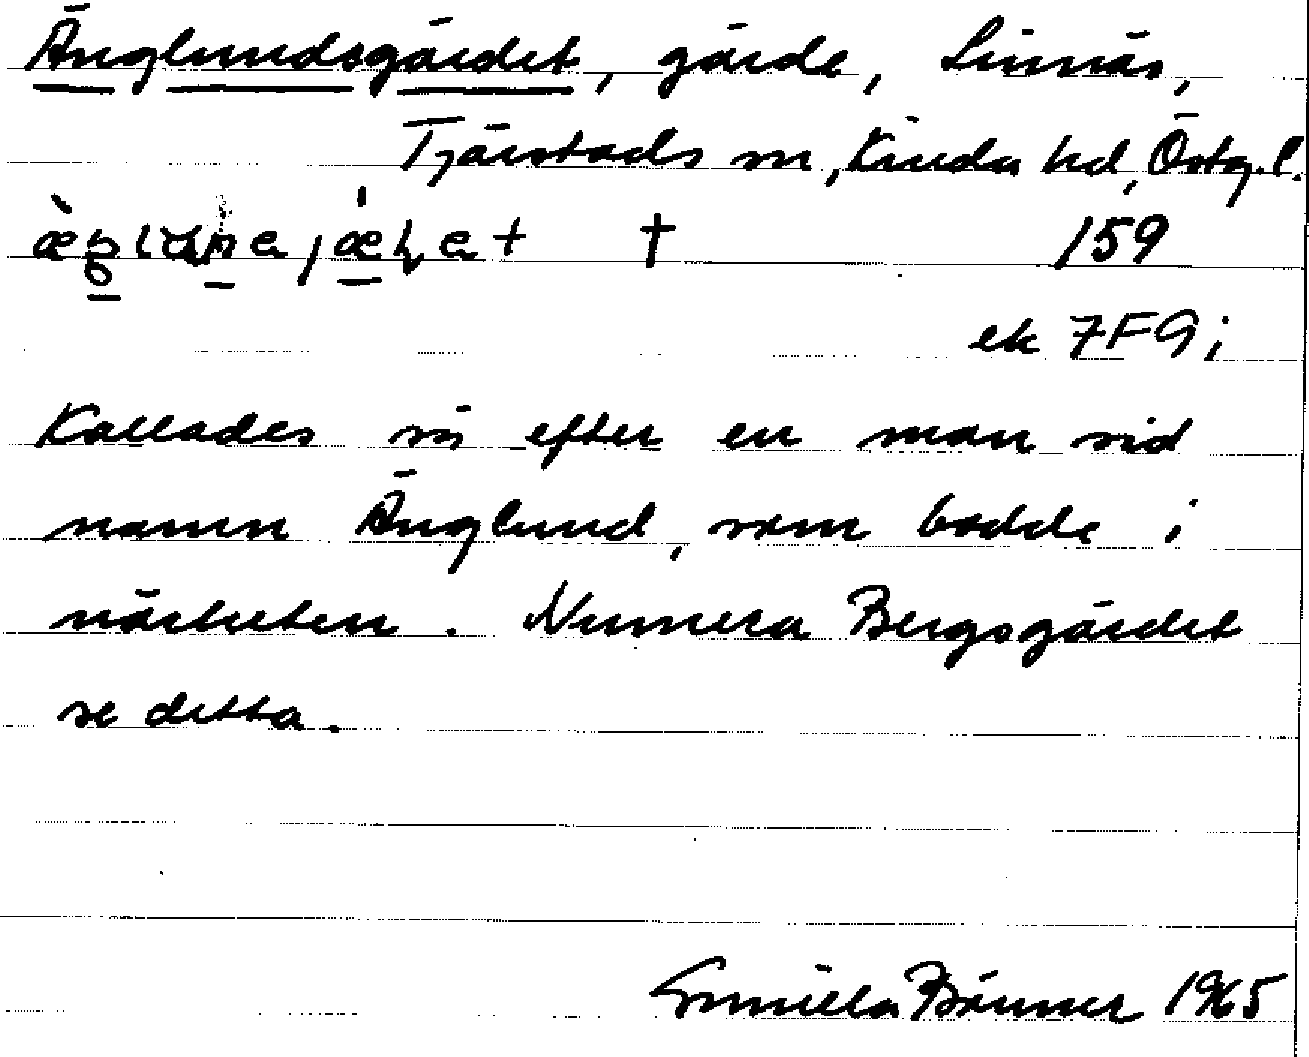 Änglundsgärdet, gärde, Linnäs,
Tjärstads sn, Kinda hd, Östg.l.
† 159
ek 7F9i
Kallades så efter en man vid
namn Änglund, som bodde i
närheten. Numera Bergsgärdet
se detta.
Gunilla 1965